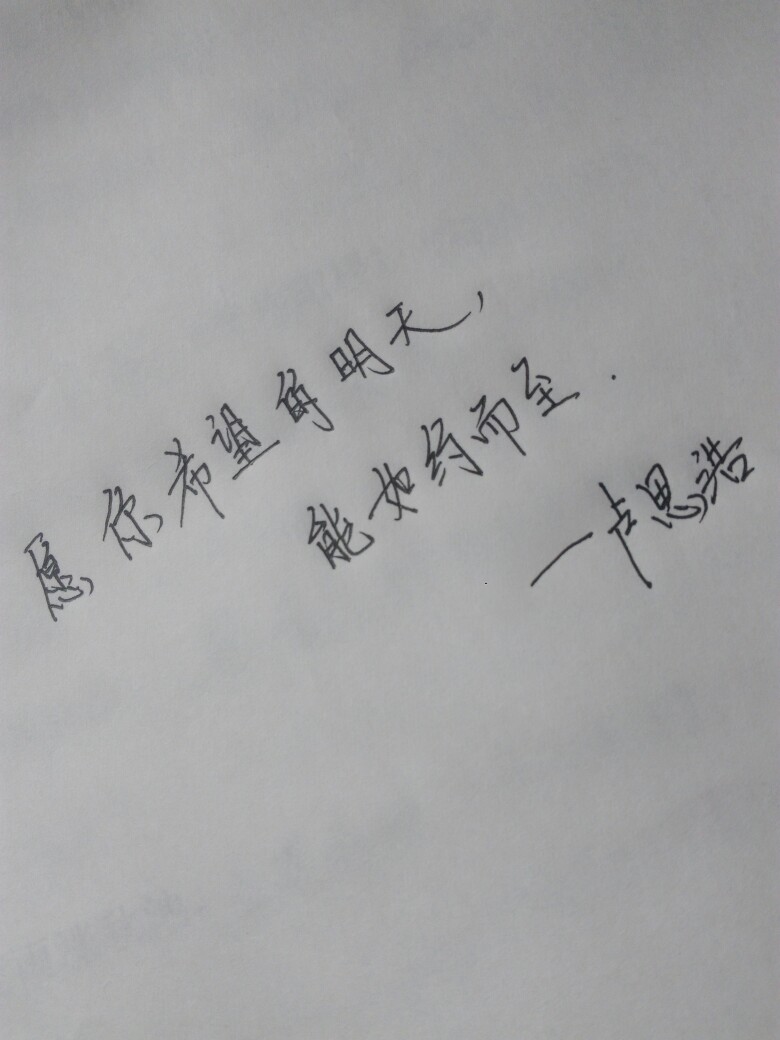 愿你希望的明天,
能如约而至.
—卢思浩